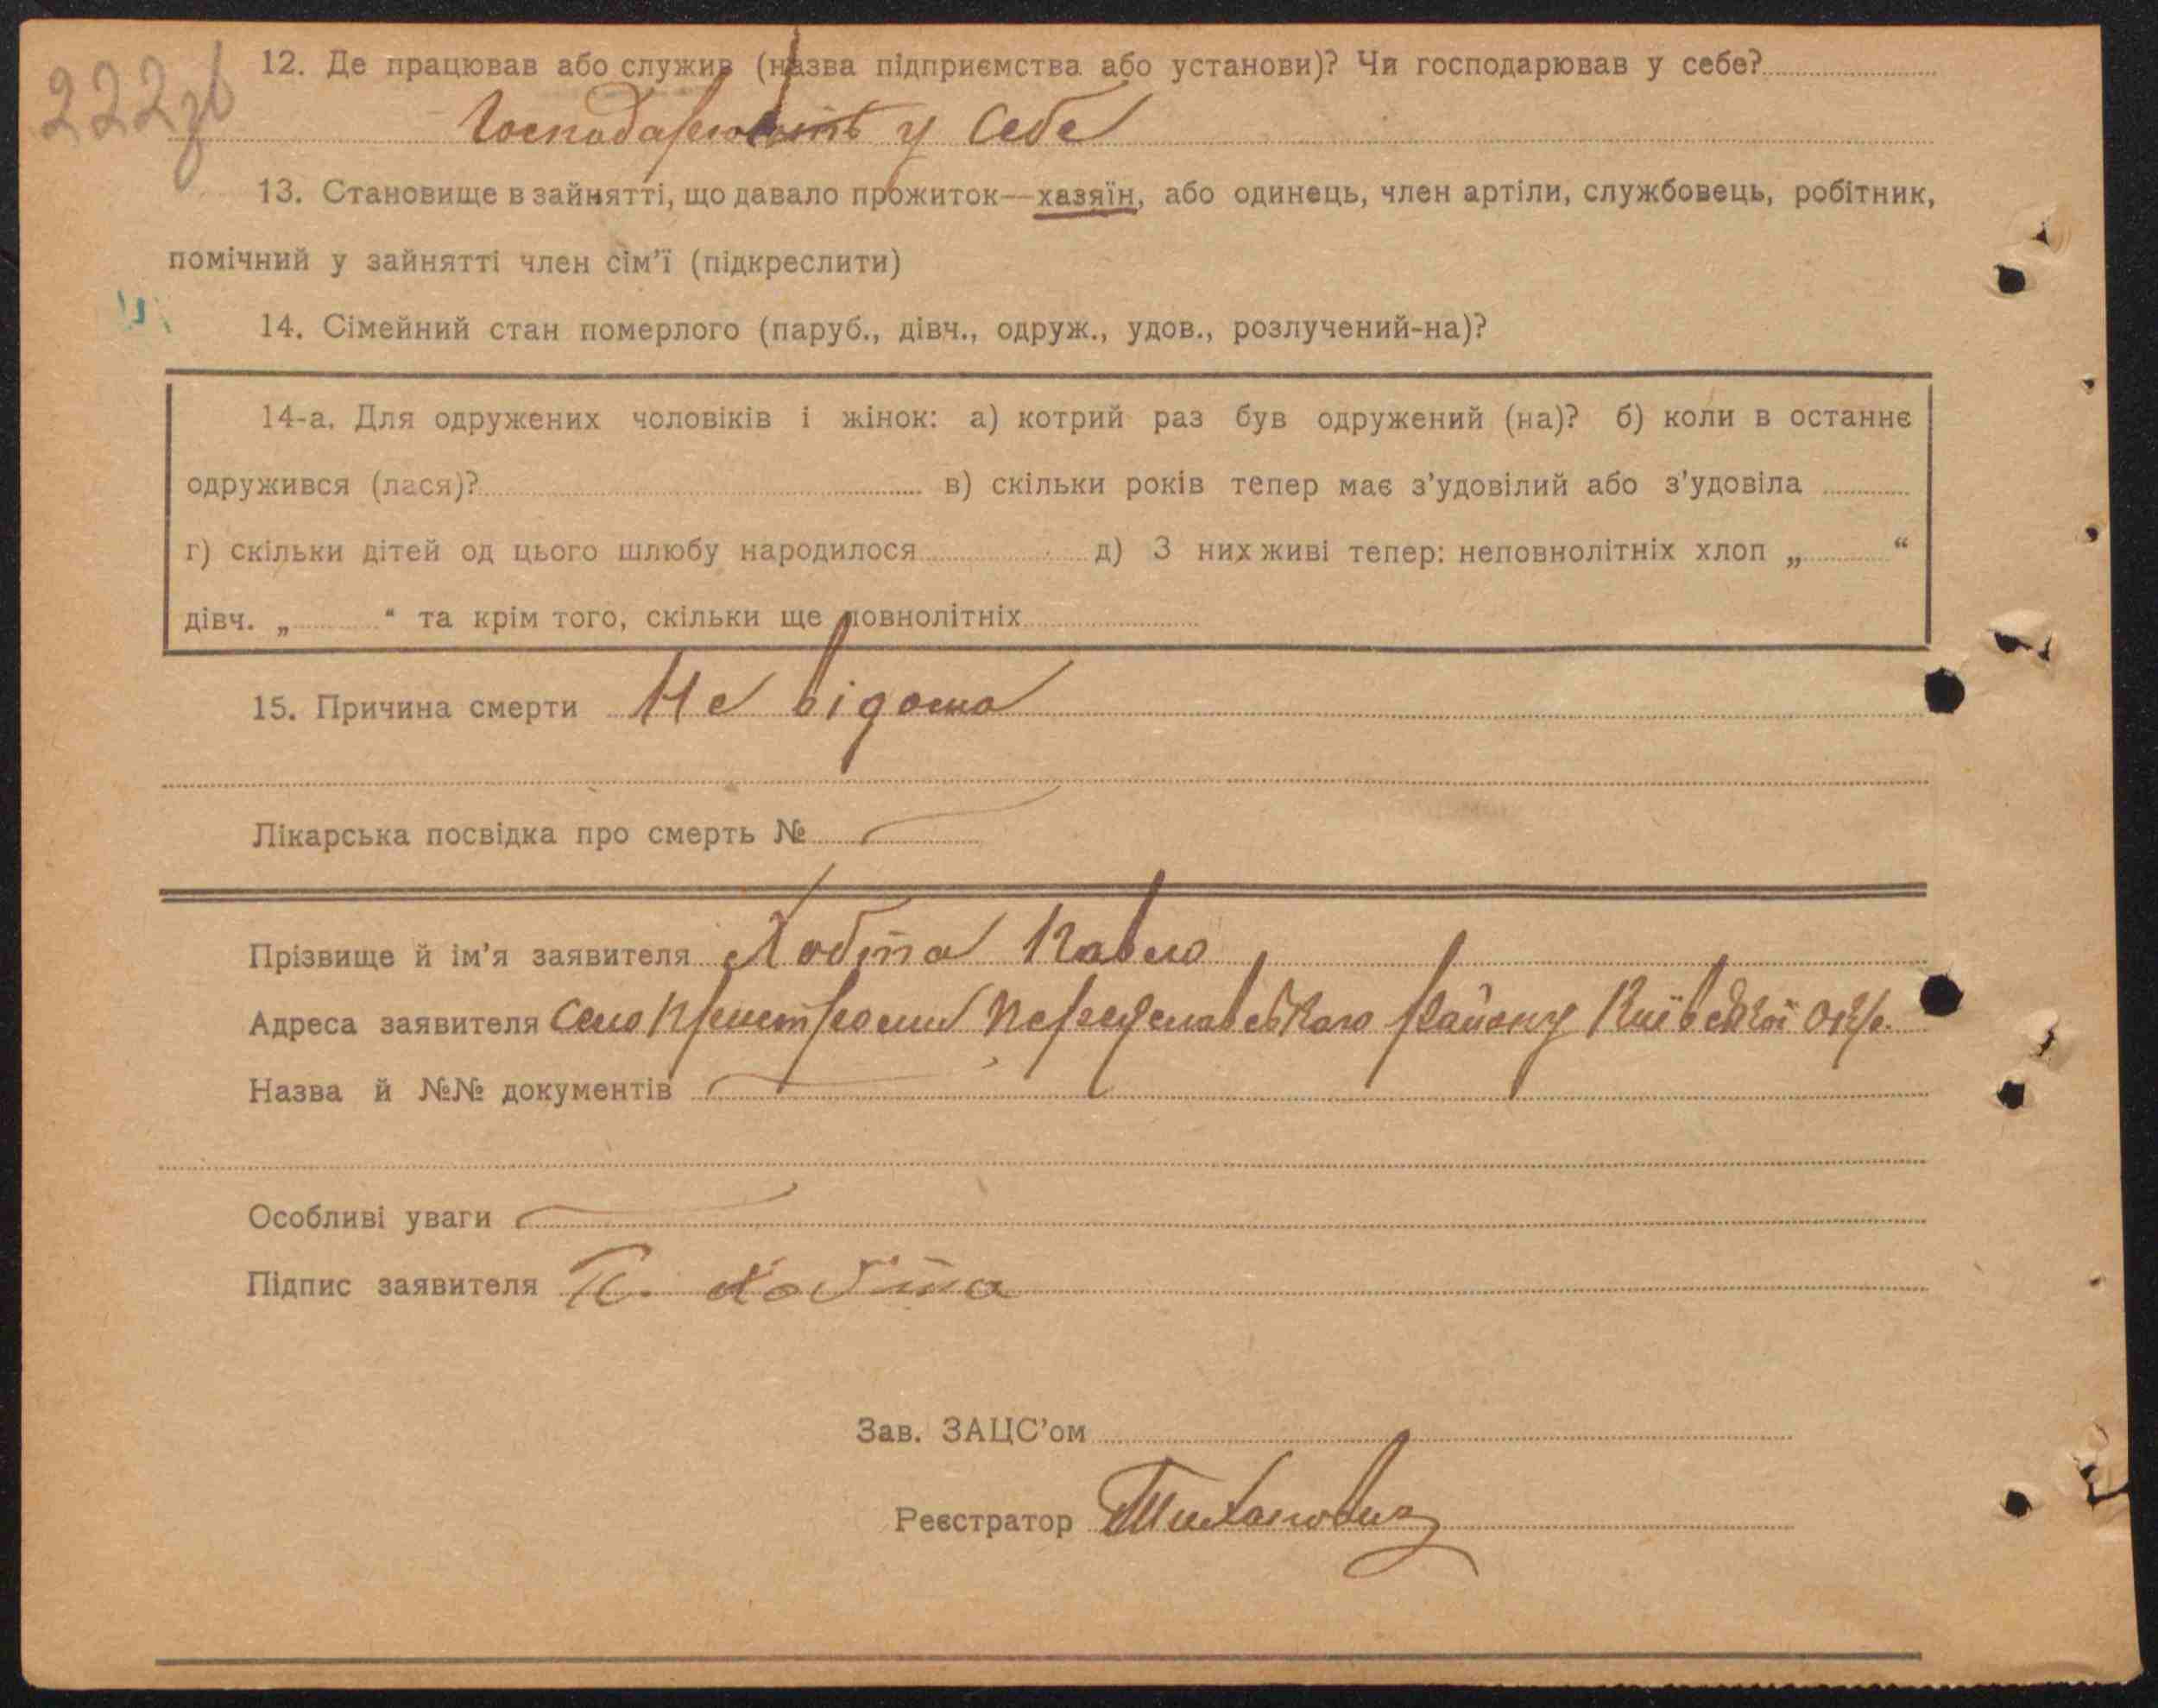 222зв
12. Де працював або служив (назва підприємства або установи)? Чи господарював у себе?
у себе
13. Становище в зайнятті, що давало прожиток—хазяїн, або одинець, член артіли, службовець, робітник,
помічний у зайнятті член сім’ї (підкреслити)
14. Сімейний стан померлого (паруб., дівч., одруж., удов., розлучений-на)?
14-а. Для одружених чоловіків і жінок: а) котрий раз був одружений (на)? б) коли в останнє
одружився (лася)? в) скільки років тепер має з’удовілий або з’удовіла
г) скільки дітей од цього шлюбу народилося д) З них живі тепер: неповнолітніх хлоп „ “
дівч. „ “ та крім того, скільки ще повнолітніх
15. Причина смерти Не відома
Лікарська посвідка про смерть №
Прізвище й ім’я заявителя Хобта Павло
Адреса заявителя село Пристроми Переяславського району Київської окр.
Назва й №№ документів
Особливі уваги
Підпис заявителя П. Хобта
Зав. ЗАЦС’ом
Реєстратор